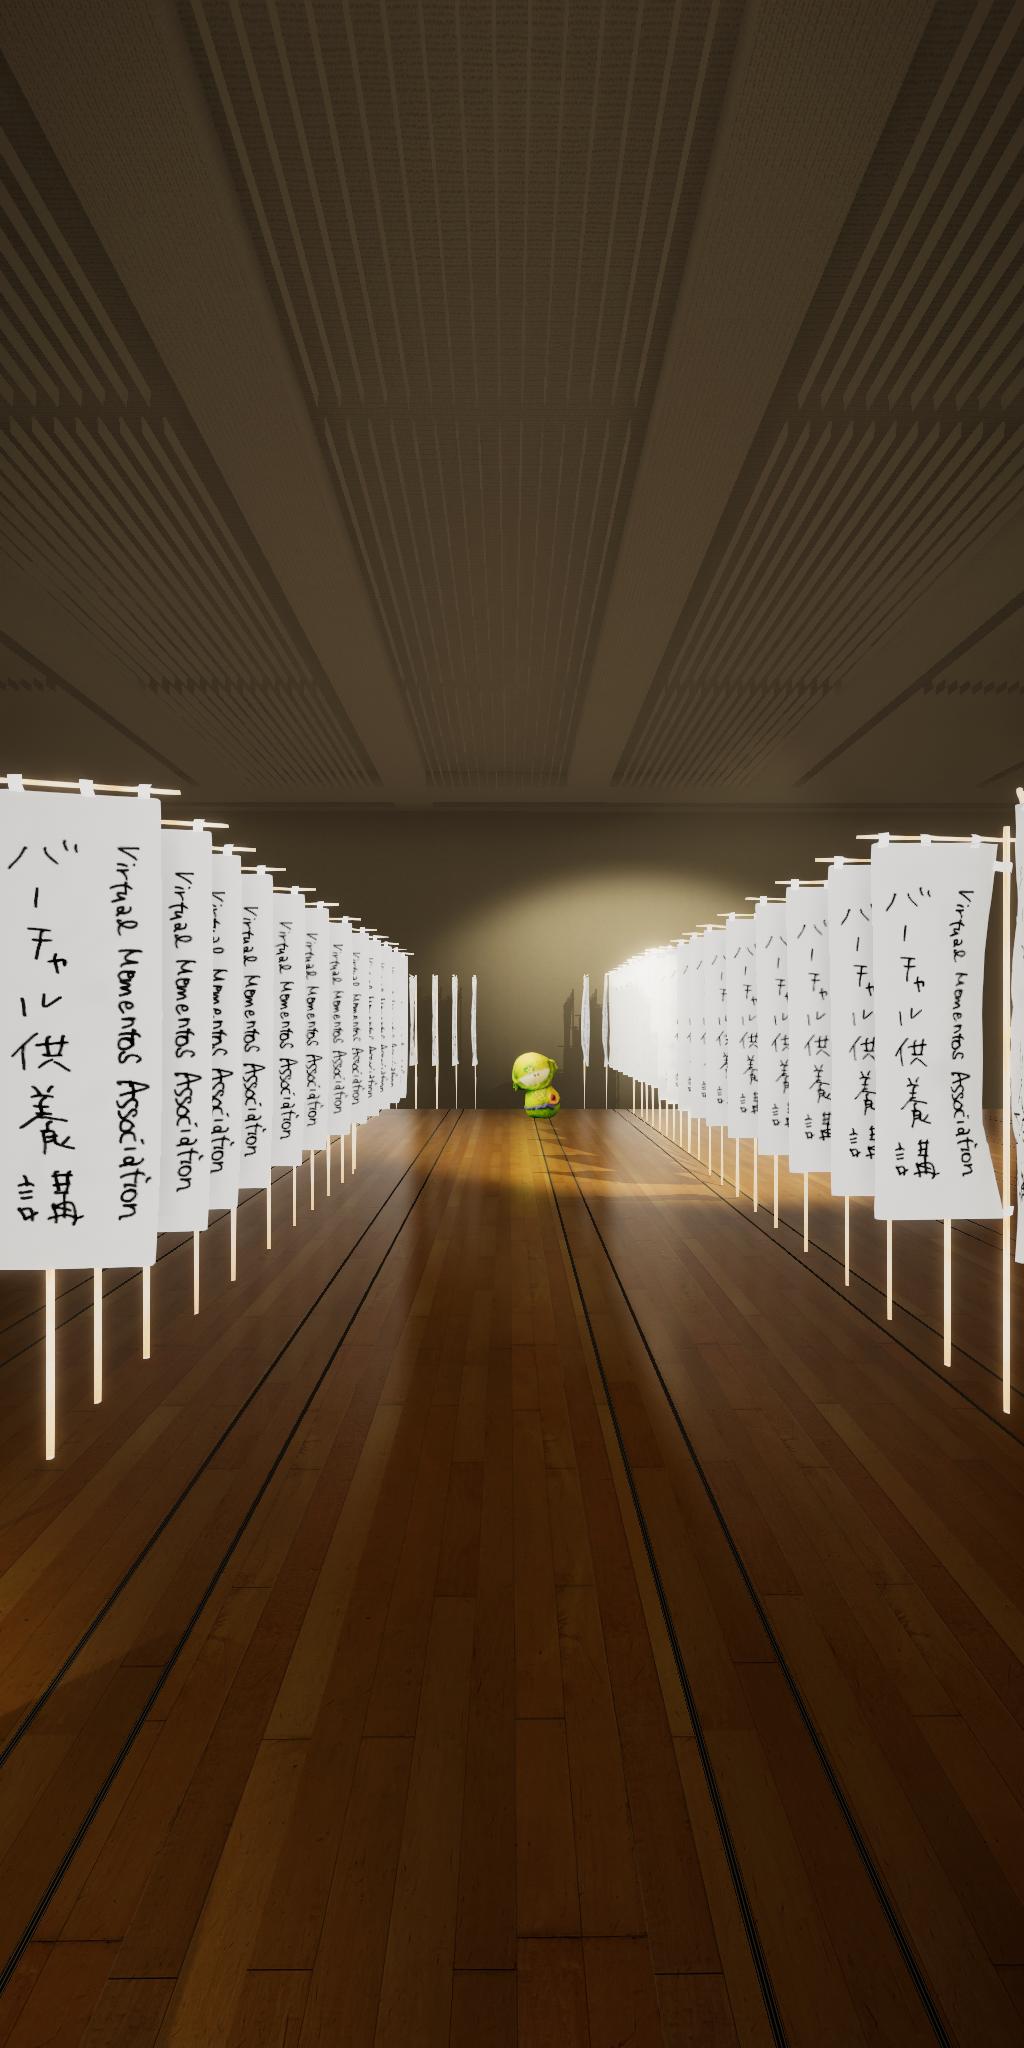 バーチャル供養講
Virtual Momentos Association
Virtual Momentos Association
Virtual Momentos Association
Virtual Momentos Association
Virtual Momentos Association
Virtual Momentos Association
Virtual Momentos Association
バーチャル供養講
バーチャル供養講
バーチャル供養講
バーチャル供養講
Virtual Momentos Association